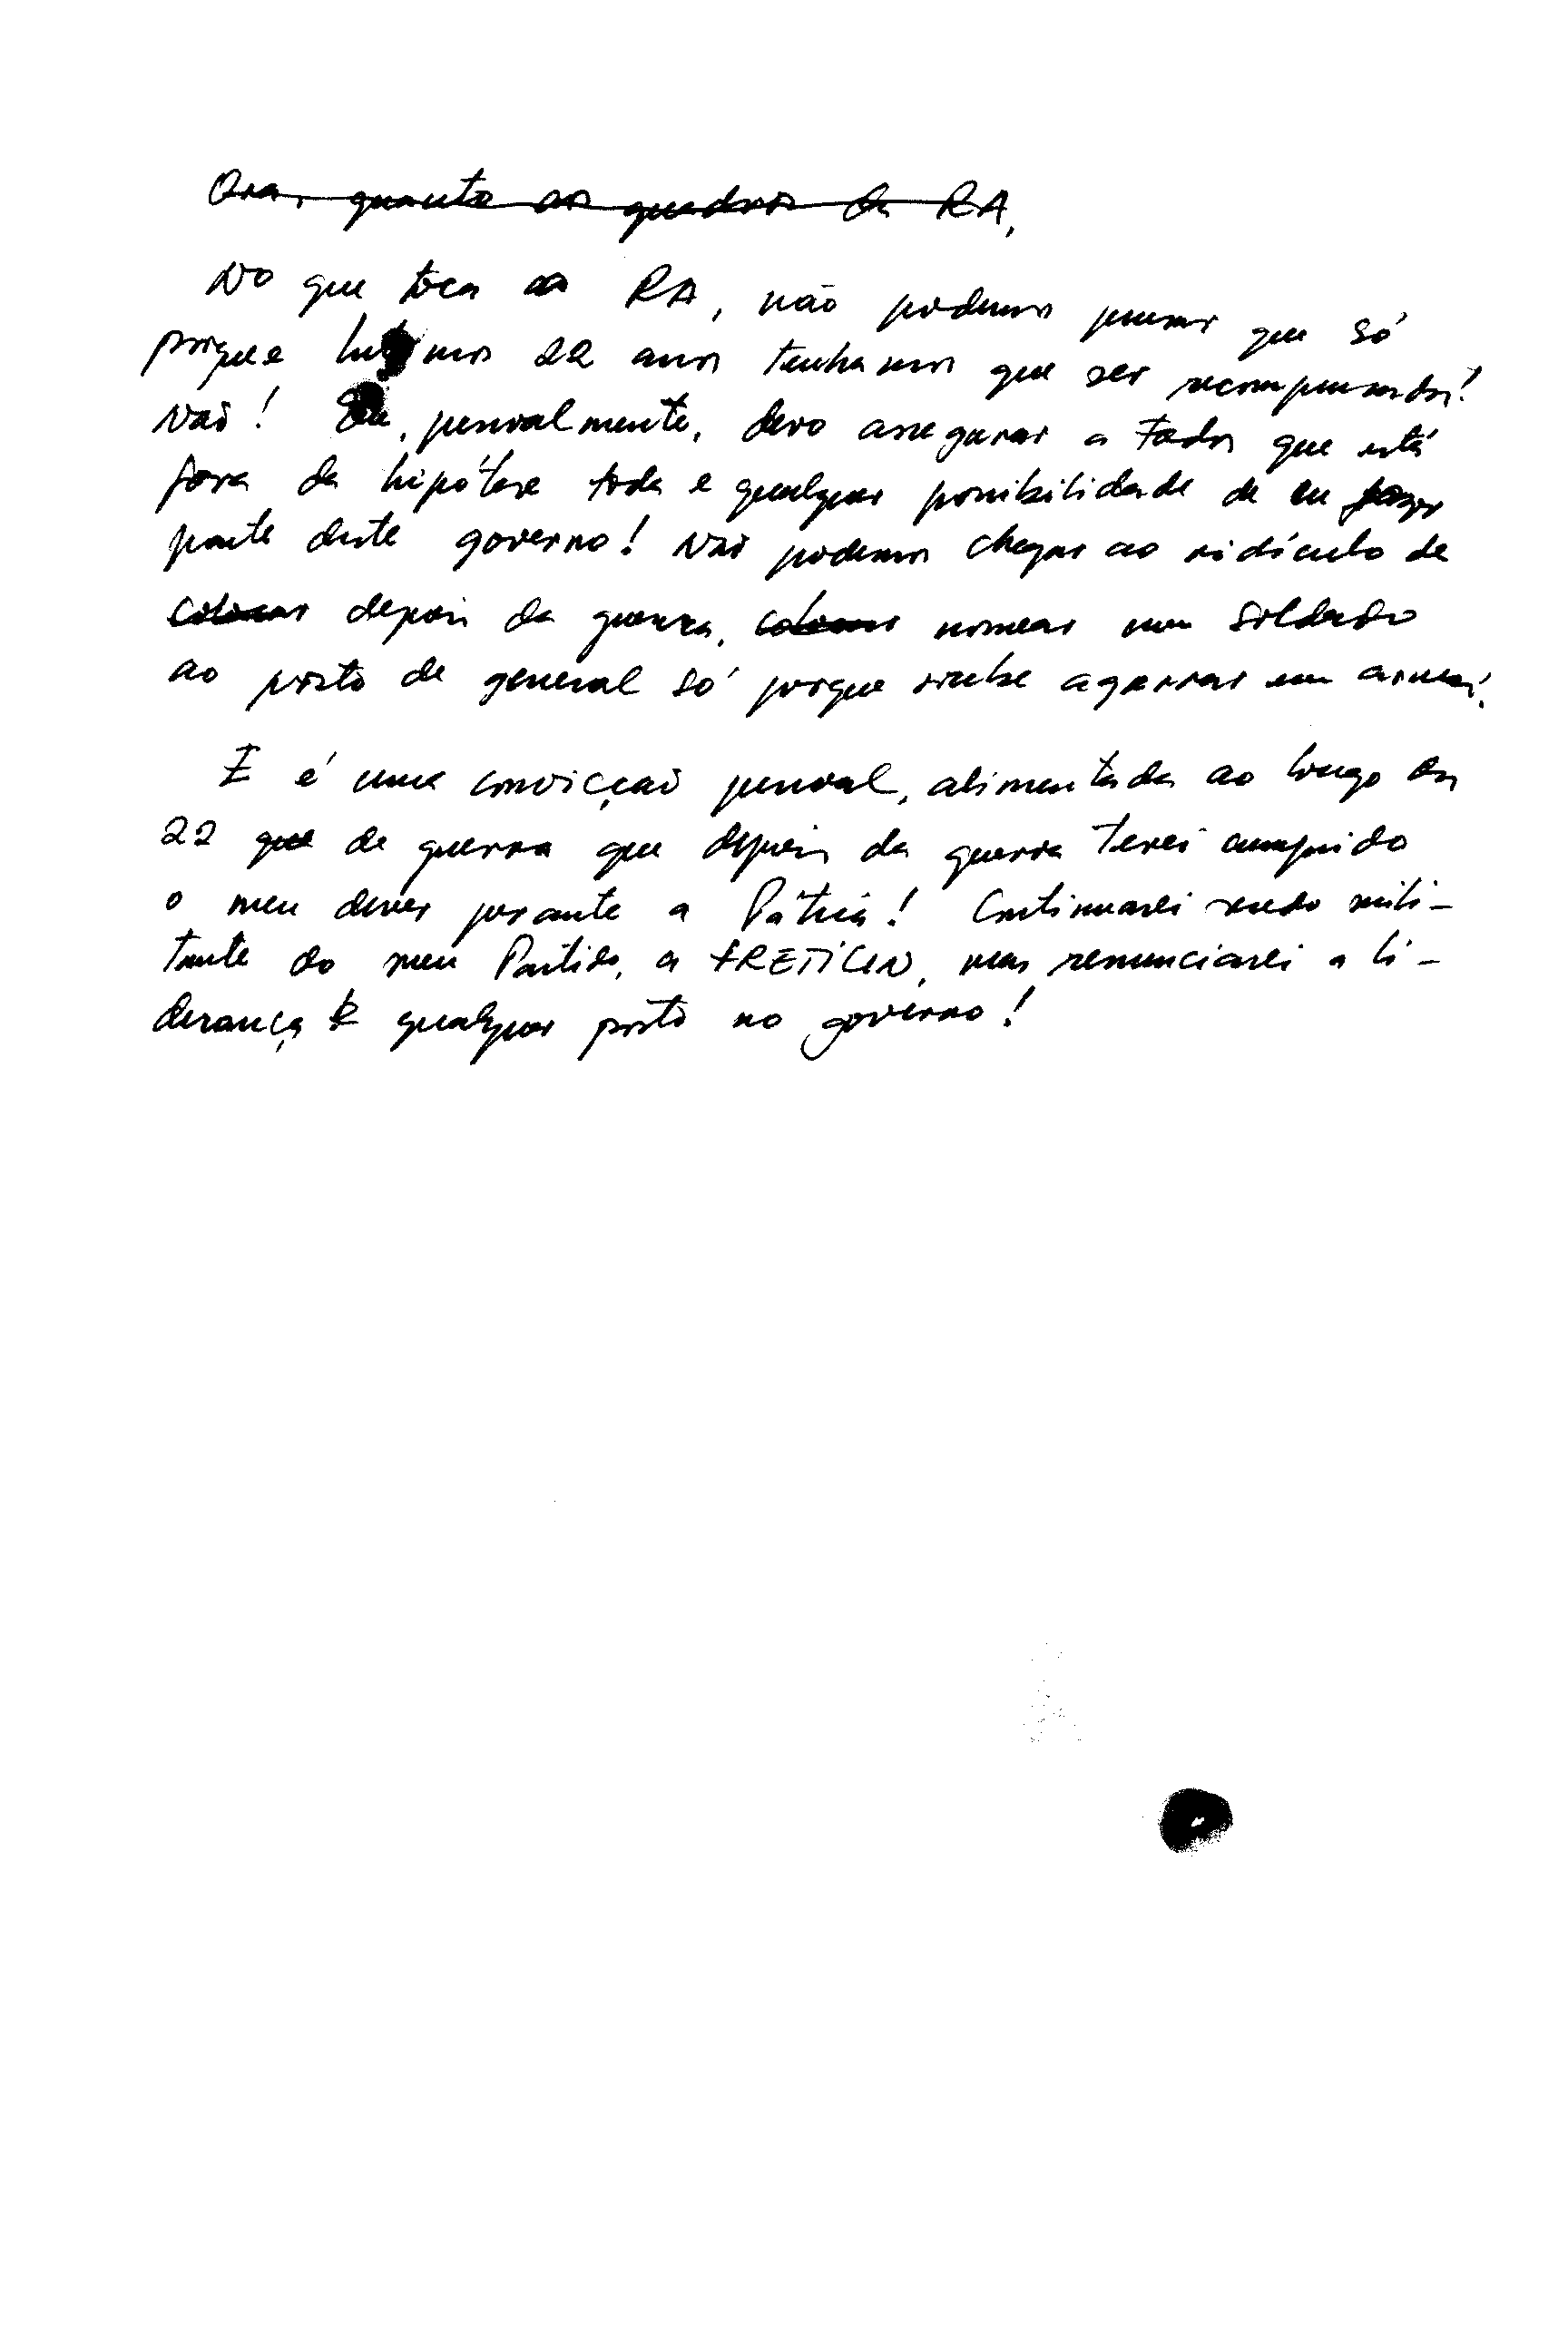 Ora, quanto aos quadros da RA,
No que toca a RA, não podemos pensar que só
porque lutámos 22 anos tenhamos que ser recompensados!
Não! Eu, pessoalmente, devo assegurar a todos que está
fora da hipótese toda e qualquer possibilidade de eu fazer
parte deste governo! Não podemos chegar ao ridículo de
colocar depois da guerra, colocar nomear um soldado
ao posto de general só porque soube agarrar em armas!
E é uma convicção pessoal, alimentada ao longo dos
22 que de guerra que depois da guerra terei cumprido
o meu dever perante a Pátria! Continuarei sendo mili-
tante do meu Partido, a FRETILIN, mas renunciarei a li-
derança e qualquer posto no governo!